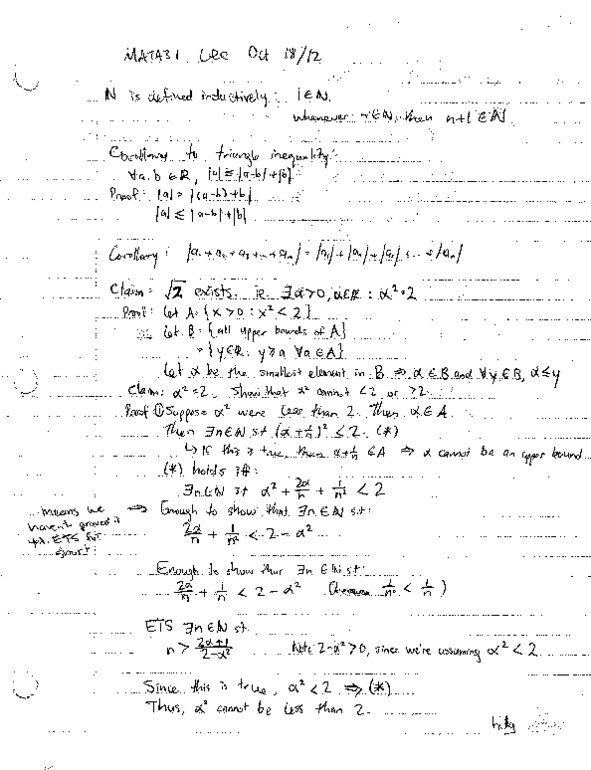 MATA31 Lec Oct 18/12
N is defined inductively: 1∈N.
whenever n∈N, then n+1∈N
Corollary to triangle inequality:
∀a,b∈R, |a|≤|a-b|+|b|
Proof: |a|=|(a-b)+b|
|a|≤|a-b|+|b|
Corollary: |a₁+a₂+a₃+...+aₙ|
Claim: √2 exists. ie. ∃α>0, α∈R : α²=2
Proof: Let A={x>0 : x²<2}
Let B={all upper bounds of A}
={y∈R: y≥a ∀a∈A}
Let α be the smallest element in B ⇒ α∈B and ∀y∈B, α≤y
Claim: α²=2. Show that α² cannot <2 or >2.
Proof ① Suppose α² were less than 2. Then α∈A.
Then ∃n∈N st (α+1/n)²<2. (*)
↳ If this is true, then α+1/n ∈A ⇒ α cannot be an upper bound
(*) holds iff:
∃n∈N st α²+2α/n+1/n²<2
means we haven't proved it
⇒ Enough to show that ∃n∈N st:
2α/n+1/n²<2-α²
Enough to show that ∃n∈N st:
2α/n+1/n<2-α² 1/n²<1/n)
ETS ∃n∈N st
n>2α+1/2-α² Note 2-α²>0, since we're assuming α²<2
Since this is true, α²<2 ⇒ (*)
Thus, α² cannot be less than 2.